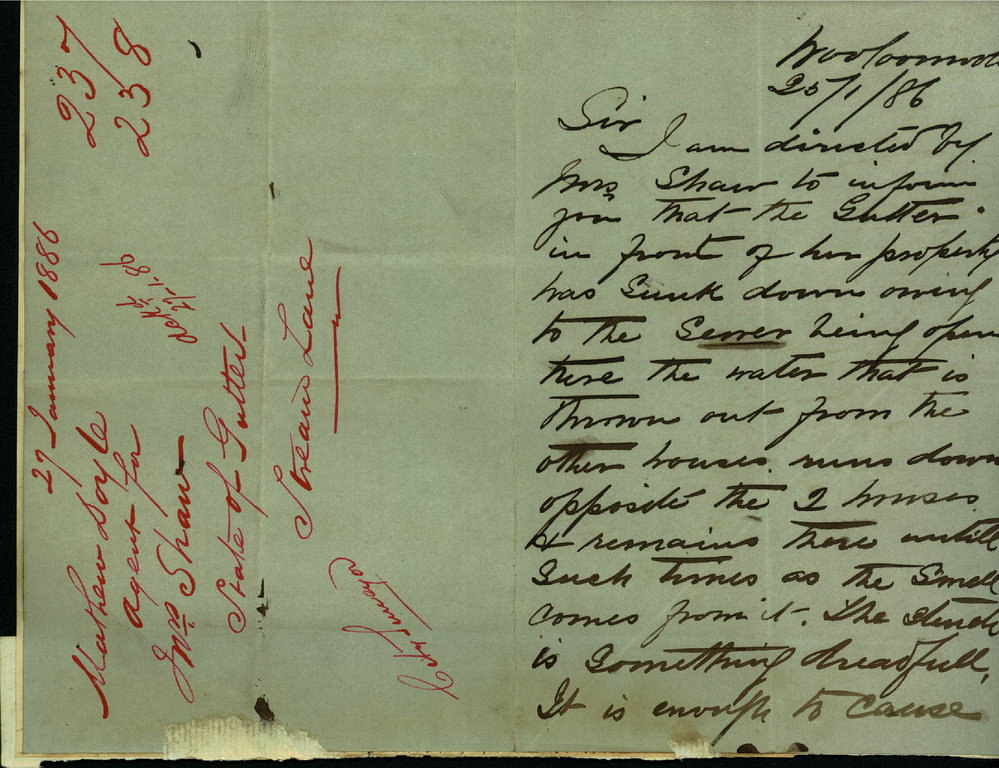 237
238
27 January 1886
Mathew Doyle
agent for
Mrs Shaw
27.1.86
State of Gutter
Stream Lane
City Surveyor
25/1/86
Sir
I am directed by
Mrs Shaw to inform
you that the Gutter
in front of her property
has Sunk down owing
to the Sewer being open
there the water that is
thrown out from the
other houses. runs down
opposite the 2 houses
& remains there untill
Such times as the Smell
comes from it. The Stench
is Something dreadfull,
It is enough to cause